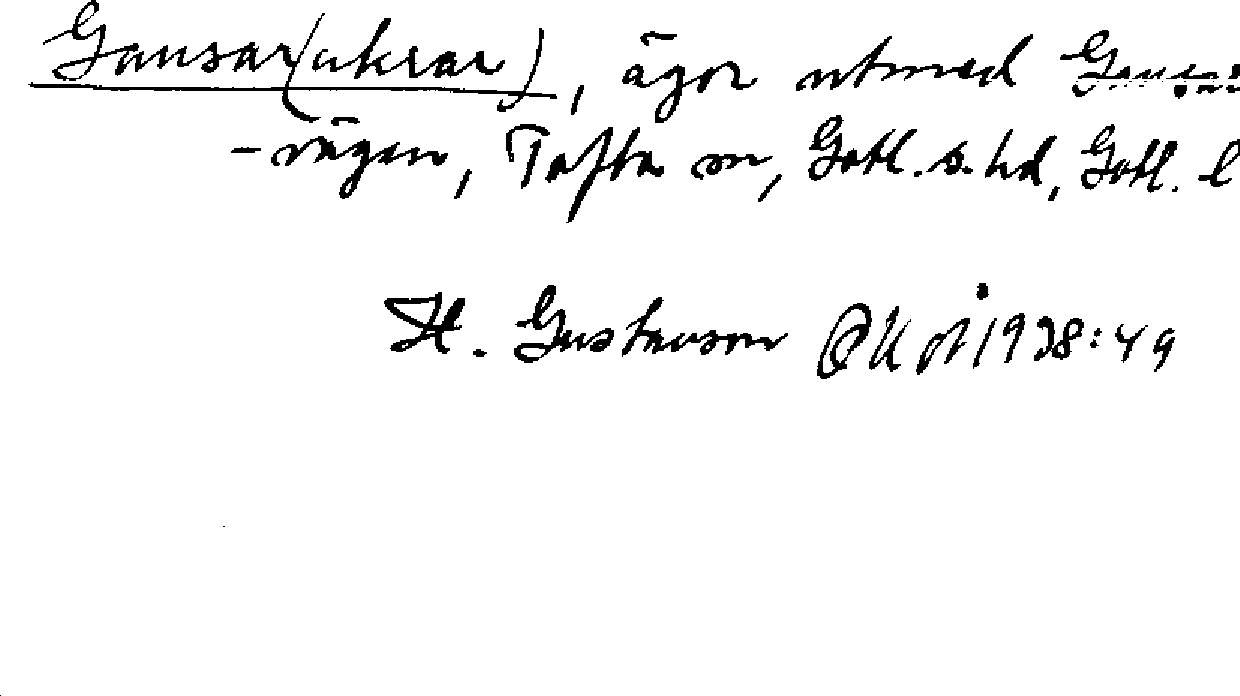 Gansar(åkrar), ägor utmed
-vägen, Tofta sn, Gotl. s. hd, Gotl. l
H. Gustavson OUÅ 1938:49